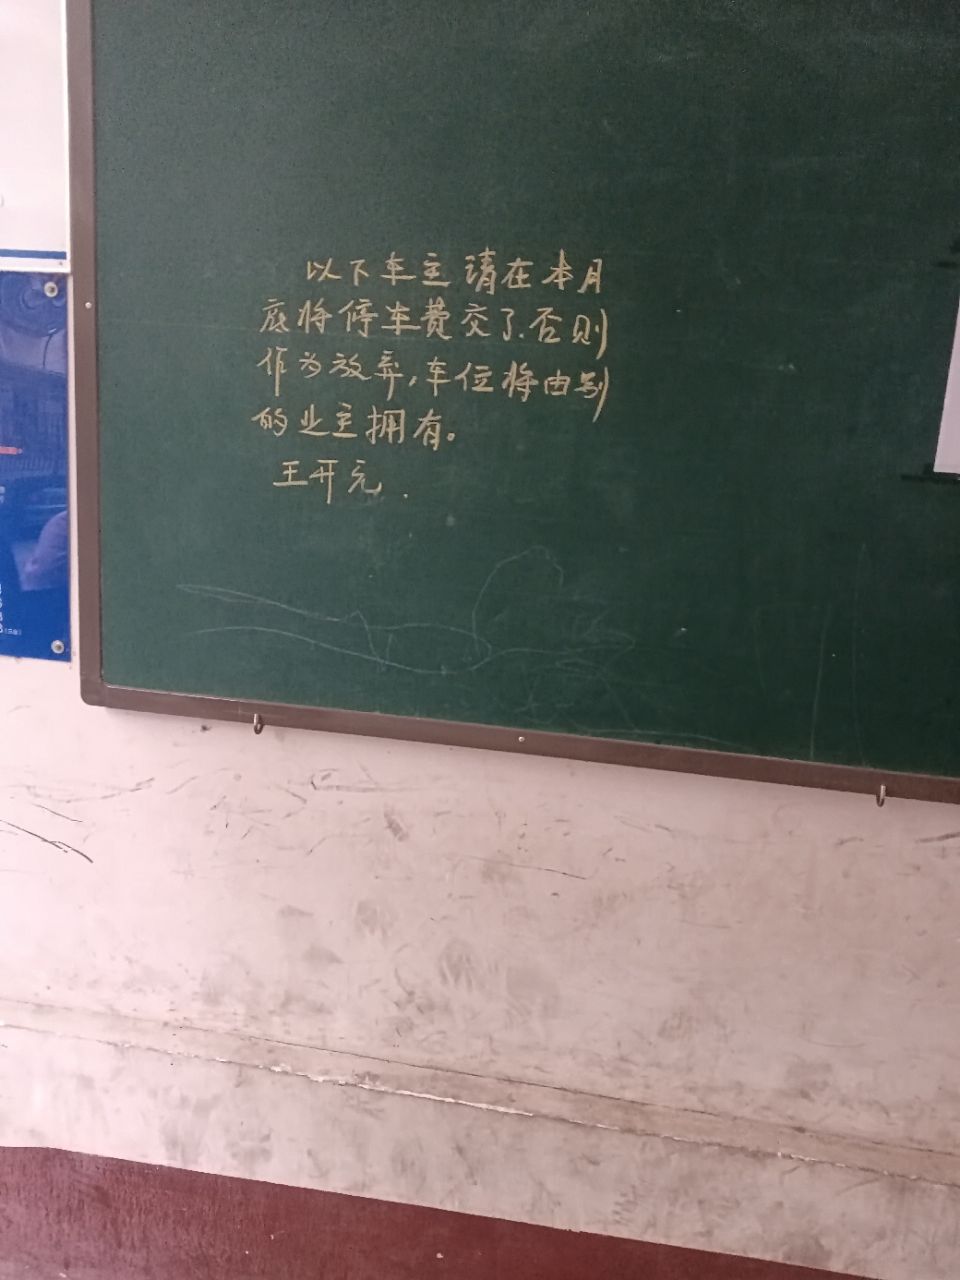 以下车主请在本月
底将停车费交了.否则
作为放弃,车位将由别
的业主拥有。
王开元.